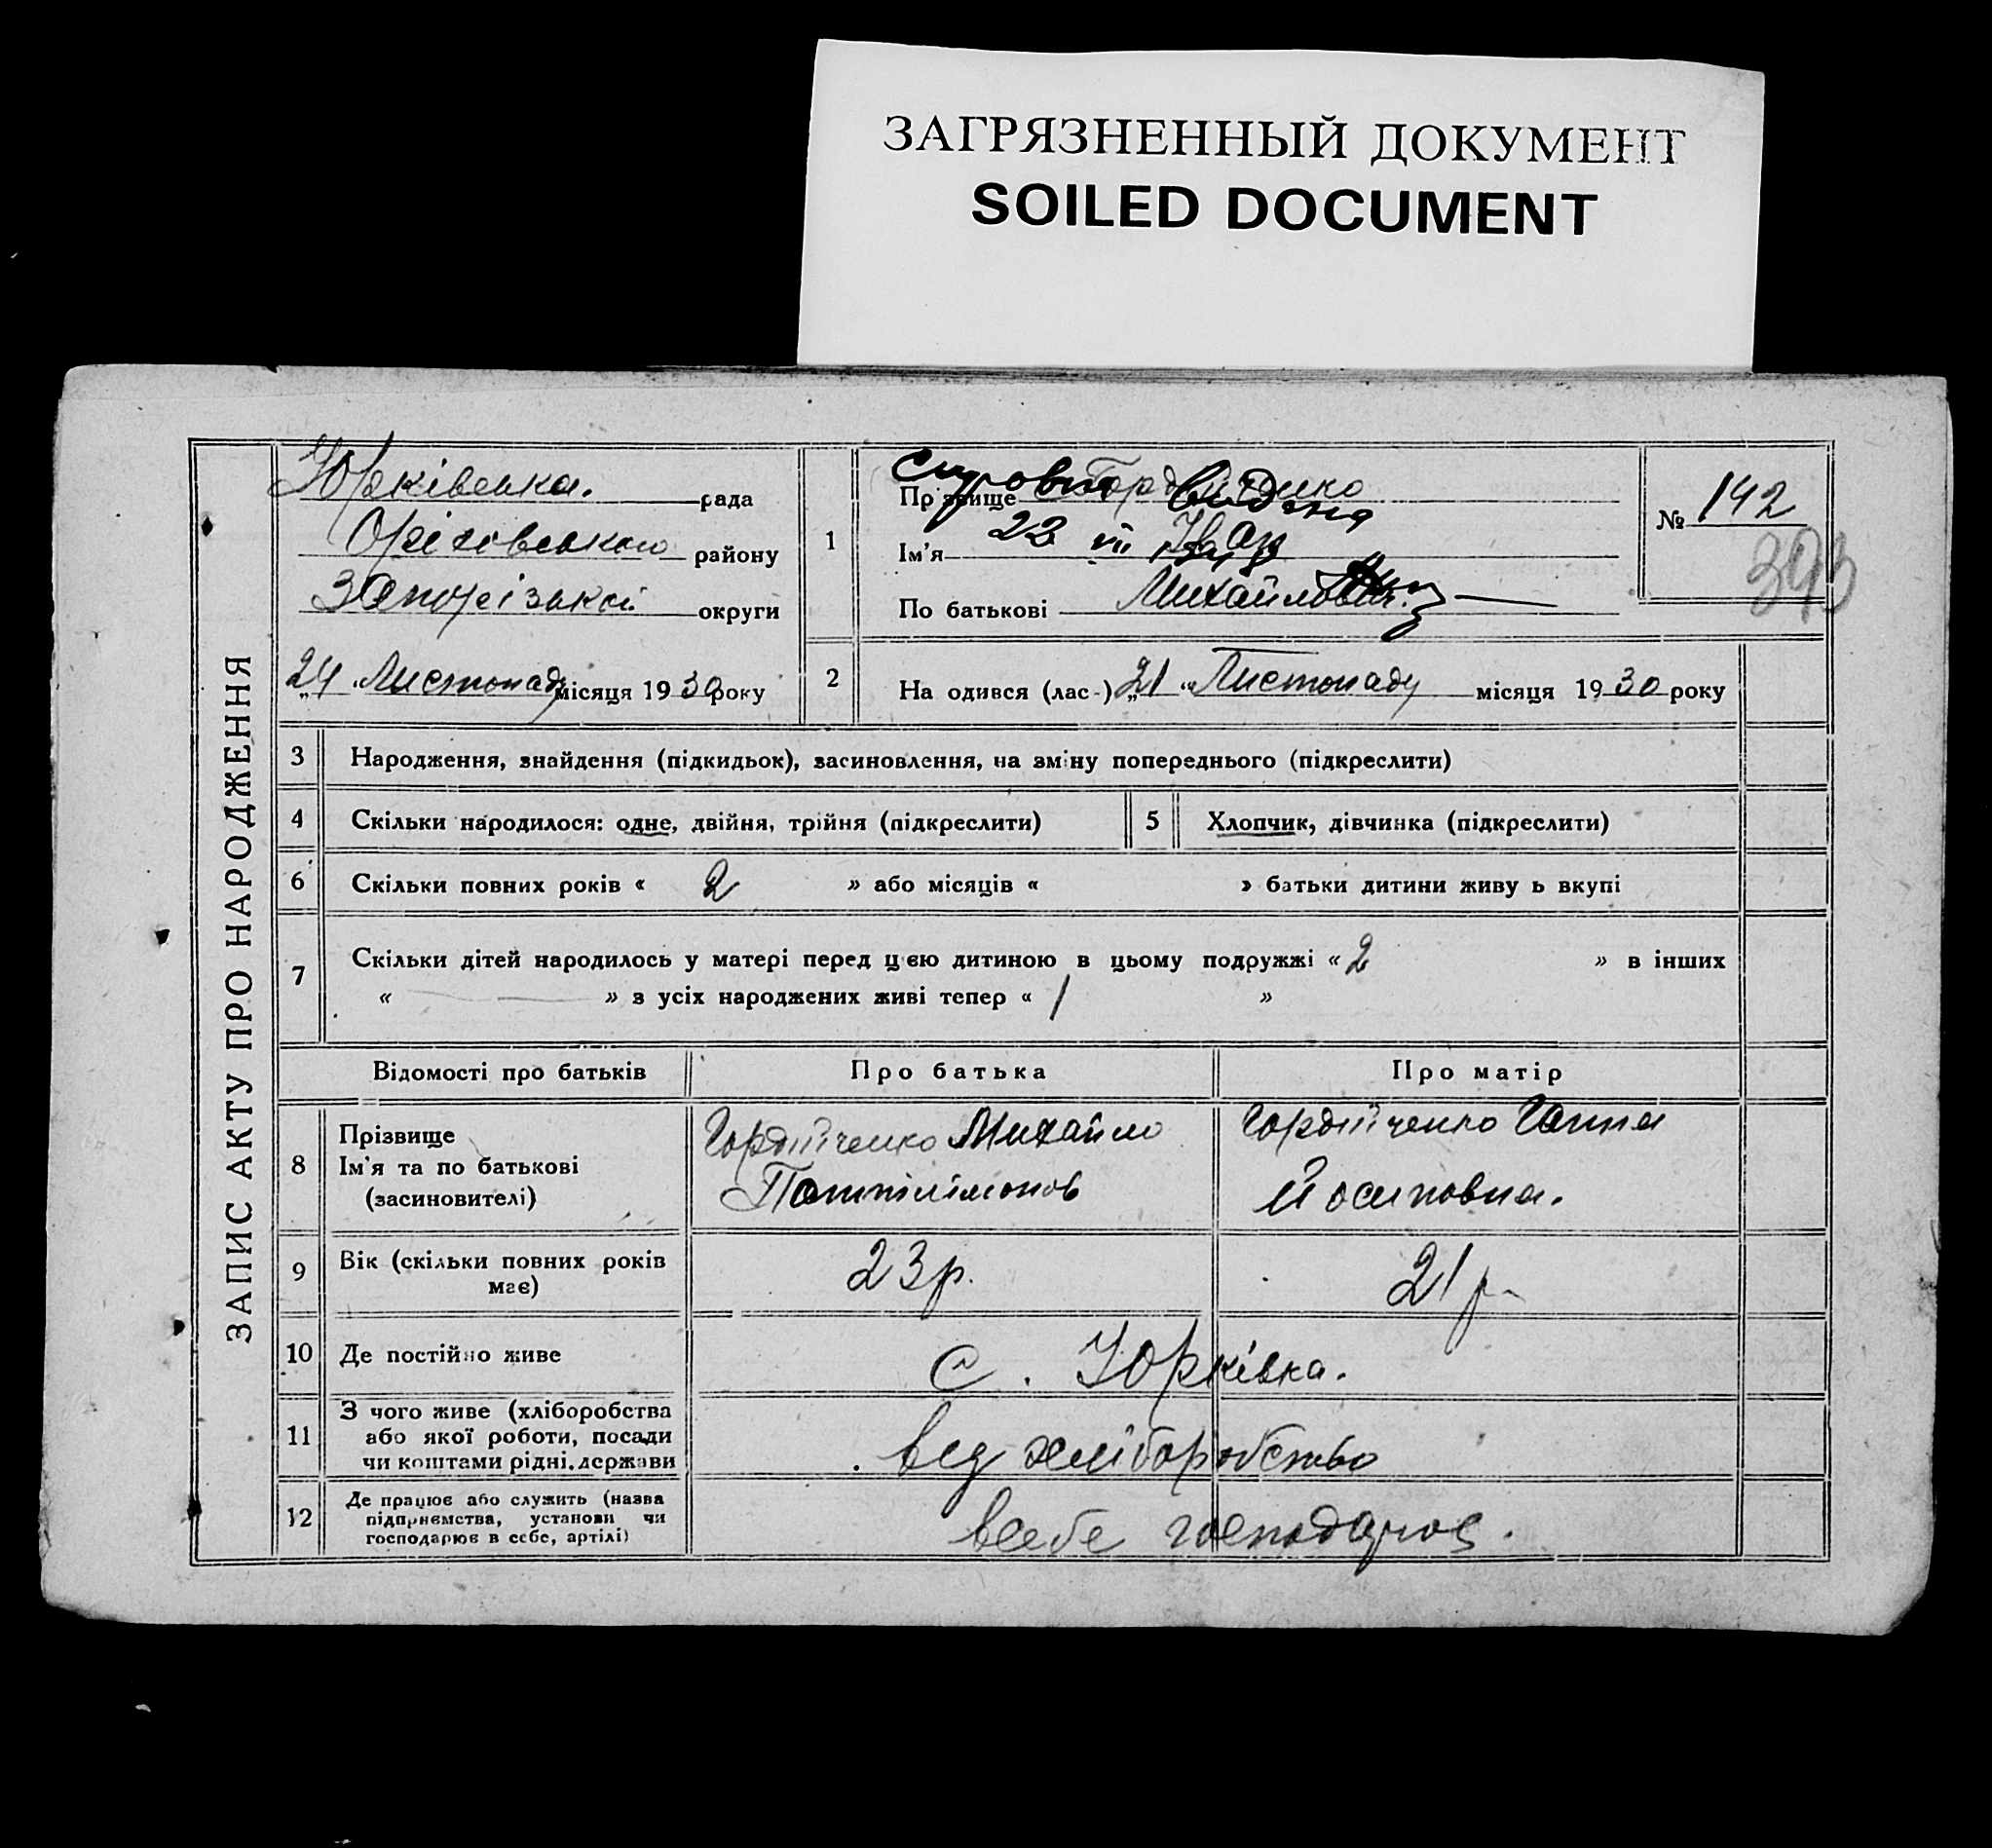 ЗАГРЯЗНЕННЫЙ ДОКУМЕНТ
SOILED DOCUMENT
ЗАПИС АКТУ ПРО НАРОДЖЕННЯ
Юрківська. рада
Оріховського району
Запорізької округи
24 Листопаду місяця 1930 року
1
Прізвище
Ім'я Іван
По батькові Михайлович
№ 142
393
2 На одився (лас-) „21" Листопаду місяця 1930 року
3 Народження, знайдення (підкидьок), засиновлення, на зміну попереднього (підкреслити)
4 Скільки народилося: одне, двійня, трійня (підкреслити) 5 Хлопчик, дівчинка (підкреслити)
6 Скільки повних років « 2 » або місяців « » батьки дитини живу ь вкупі
7 Скільки дітей народилось у матері перед цією дитиною в цьому подружжі « 2 » в інших
« — » з усіх народжених живі тепер « 1 »
Відомості про батьків Про батька Про матір
8 Прізвище
Ім'я та по батькові
(засиновителі)
Гордійченко Михайло
Пантілімонов
Гордійченко Ганна
Йосиповна.
9 Вік (скільки повних років
має)
23 р.
21 р.
10 Де постійно живе с. Юрківка.
11 З чого живе (хліборобства
або якої роботи, посади
чи коштами рідні, держави
від хліборобство
12 Де працює або служить (назва
підприємства, установи чи
господарює в себе, артілі)
всебе господарює.